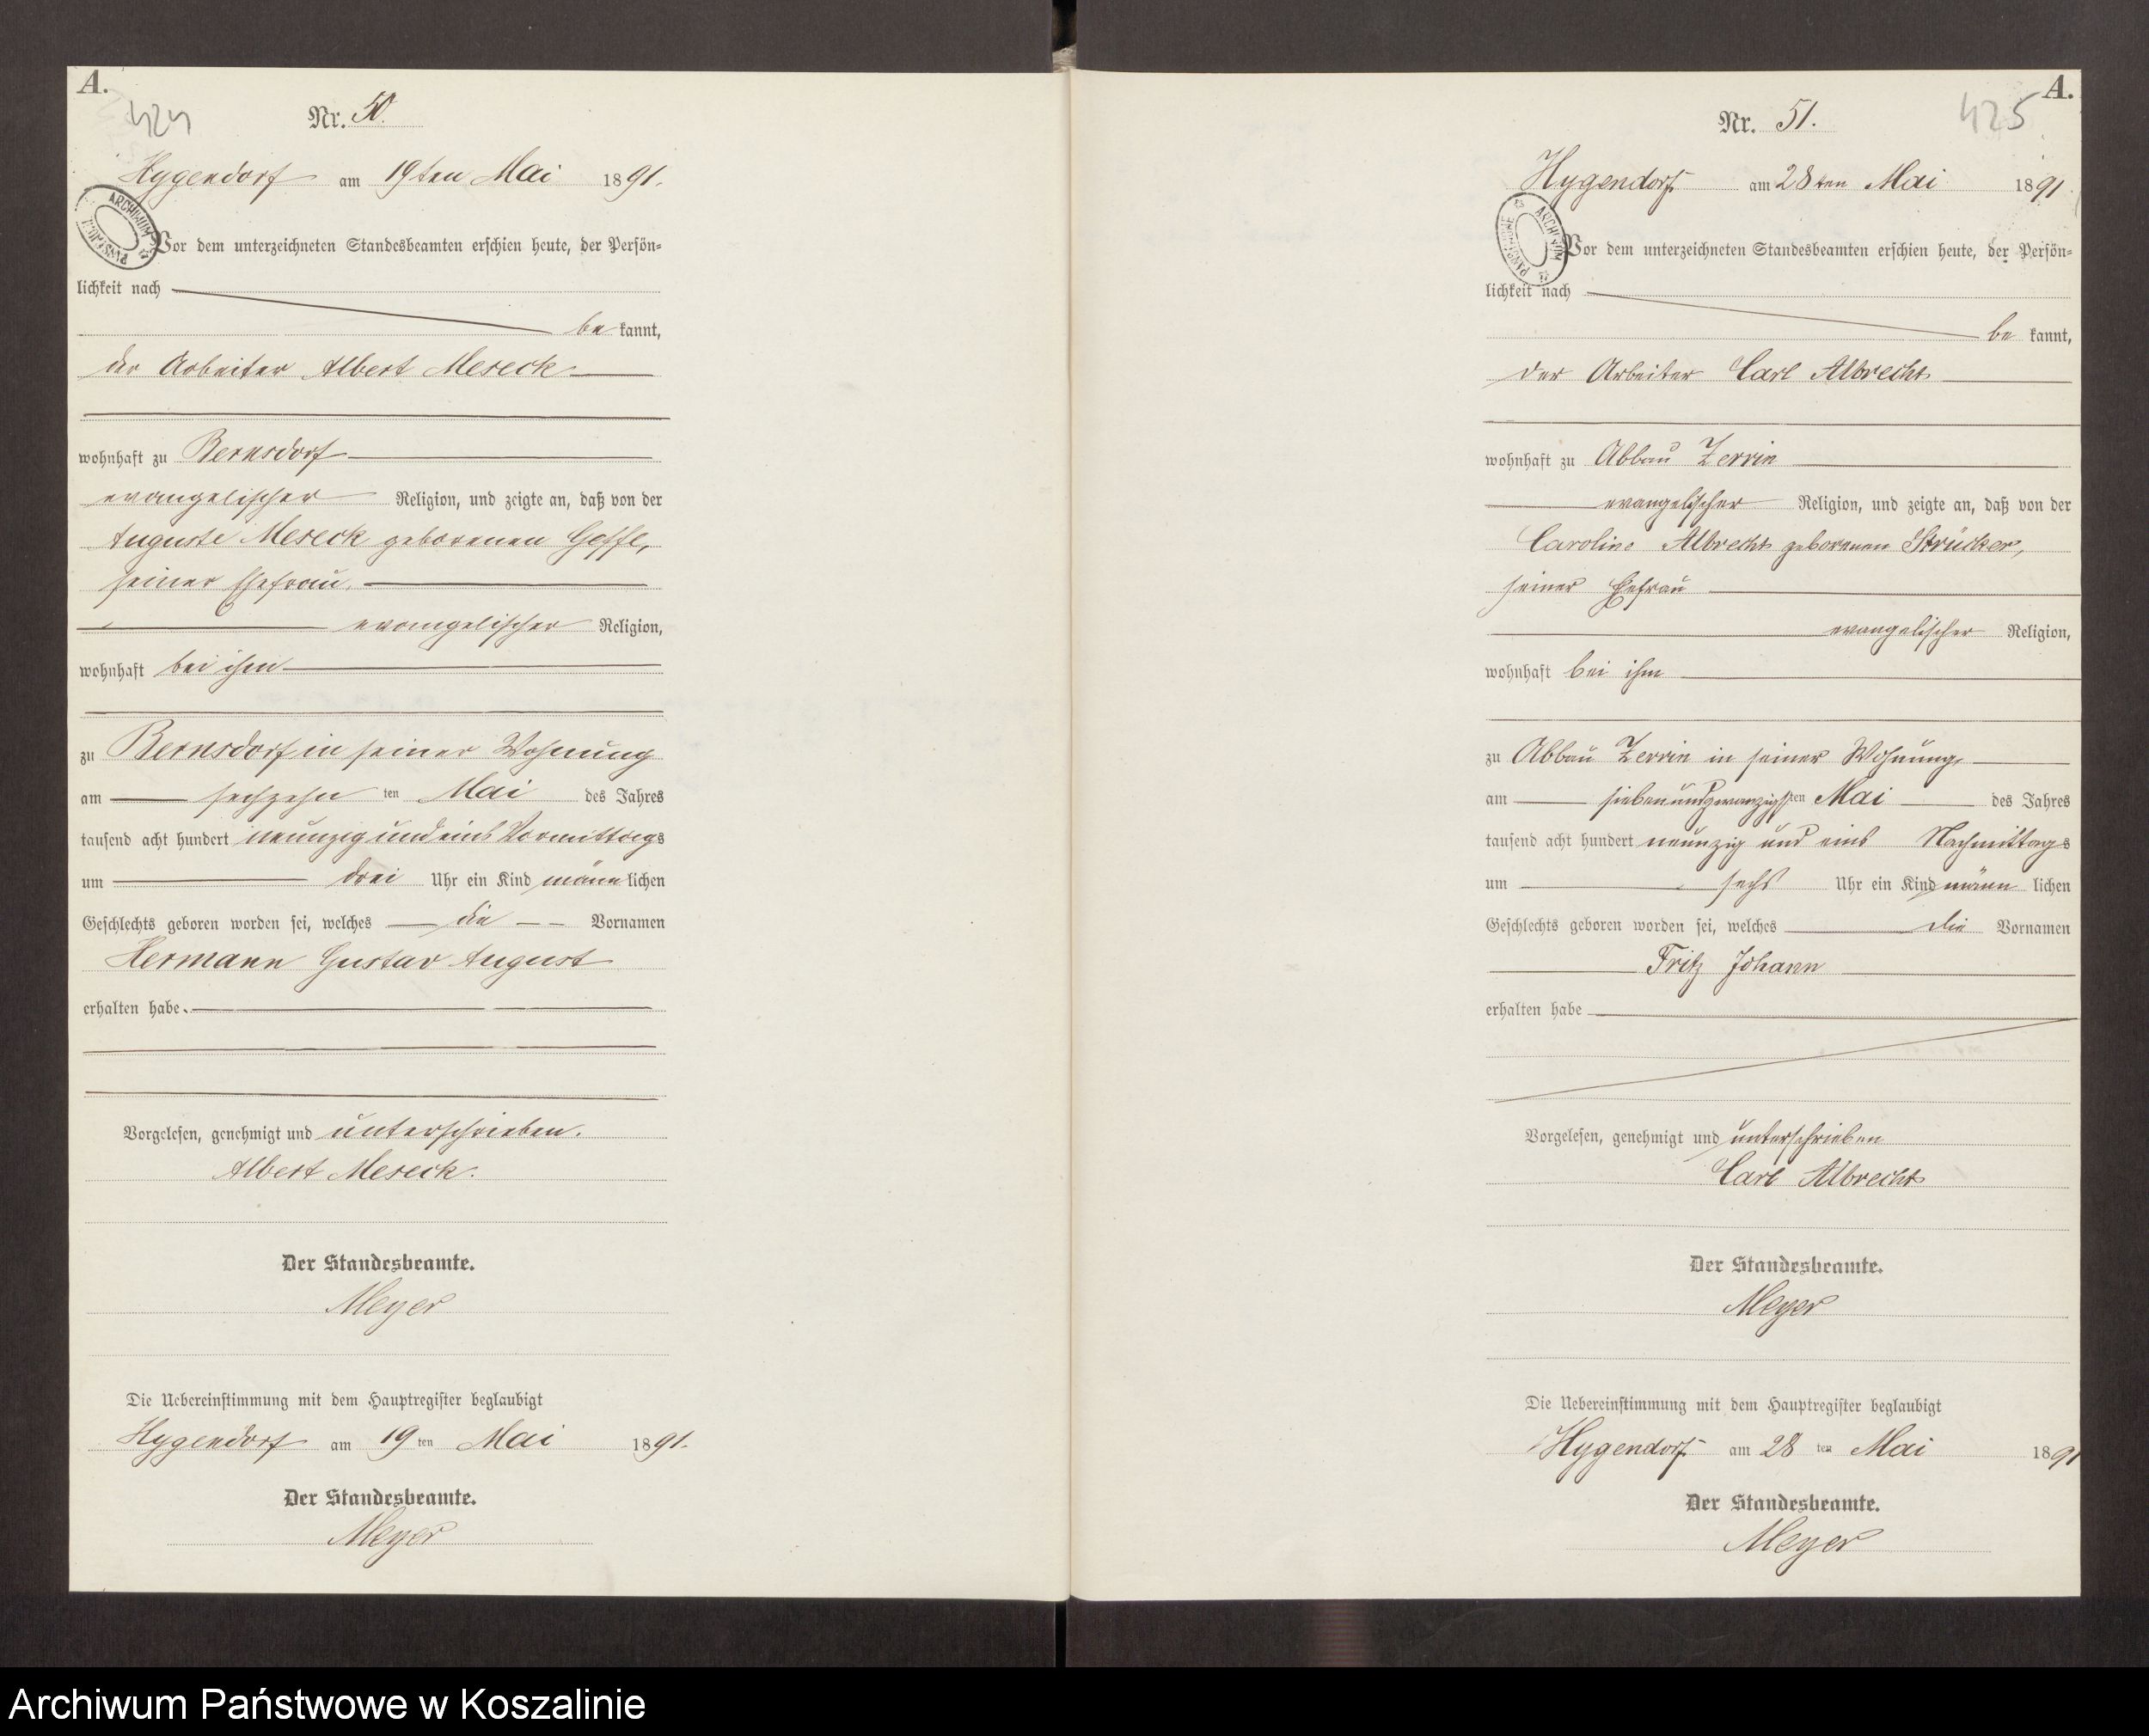 A.
424
Nr. 50.
Hygendorf am 19ten Mai 1891.
ARCHIWUM PAŃSTWOWE
Vor dem unterzeichneten Standesbeamten erschien heute, der Persön=
lichkeit nach
be kannt,
der Arbeiter Albert Meseck
wohnhaft zu Bernsdorf
evangelischer Religion, und zeigte an, daß von der
Auguste Meseck geborenen Geffe,
seiner Ehefrau,
evangelischer Religion,
wohnhaft bei ihm
zu Bernsdorf in seiner Wohnung
am sechzehn ten Mai des Jahres
tausend acht hundert neunzig und eins Vormittags
um drei Uhr ein Kind männ lichen
Geschlechts geboren worden sei, welches die Vornamen
Hermann Gustav August
erhalten habe.
Vorgelesen, genehmigt und unterschrieben.
Albert Meseck.
Der Standesbeamte.
Meyer
Die Uebereinstimmung mit dem Hauptregister beglaubigt
Hygendorf am 19 ten Mai 1891.
Der Standesbeamte.
Meyer
A.
425
Nr. 51.
Hygendorf am 28ten Mai 1891
ARCHIWUM PAŃSTWOWE
Vor dem unterzeichneten Standesbeamten erschien heute, der Persön=
lichkeit nach
be kannt,
der Arbeiter Carl Albrecht
wohnhaft zu Abbau Zerrin
evangelischer Religion, und zeigte an, daß von der
Caroline Albrecht geborenen Strücker,
seiner Ehefrau
evangelischer Religion,
wohnhaft bei ihm
zu Abbau Zerrin in seiner Wohnung,
am siebenundzwanzigsten Mai des Jahres
tausend acht hundert neunzig und eins Nachmittags
um sechs Uhr ein Kind männ lichen
Geschlechts geboren worden sei, welches die Vornamen
Fritz Johann
erhalten habe
Vorgelesen, genehmigt und unterschrieben
Carl Albrecht
Der Standesbeamte.
Meyer
Die Uebereinstimmung mit dem Hauptregister beglaubigt
Hygendorf am 28 ten Mai 1891
Der Standesbeamte.
Meyer
Archiwum Państwowe w Koszalinie